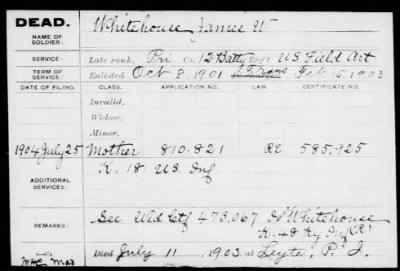 DEAD.
NAME OF SOLDIER:
Whitehouse James W
SERVICE:
Late rank, Pri Co. 12 Batty Reg't US Field Art
TERM OF SERVICE:
Enlisted Oct 8, 1901 Feb 15, 1903
DATE OF FILING. CLASS. APPLICATION NO. LAW. CERTIFICATE NO.
Invalid,
Widow,
Minor,
1904 July 25 Mother 810.821 585,925
ADDITIONAL SERVICES:
K. 18 US Inf
REMARKS:
See Wid Ctf 473,067 Whitehouse
K. 48 Ky Inf
Died July 11, 1903, at Leyte, P. I.